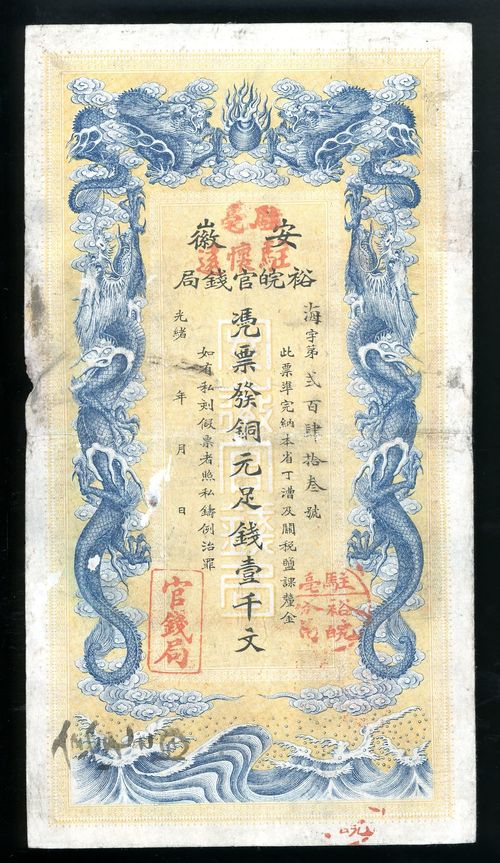 安徽
裕皖官錢局
海字第貳百肆拾叁號
此票準完納本省丁漕及關稅鹽課釐金
憑票發銅元足錢壹千文
如有私刻假票者照私鑄例治罪
光緒 年 月 日
官錢局
駐懷遠
駐亳
裕皖